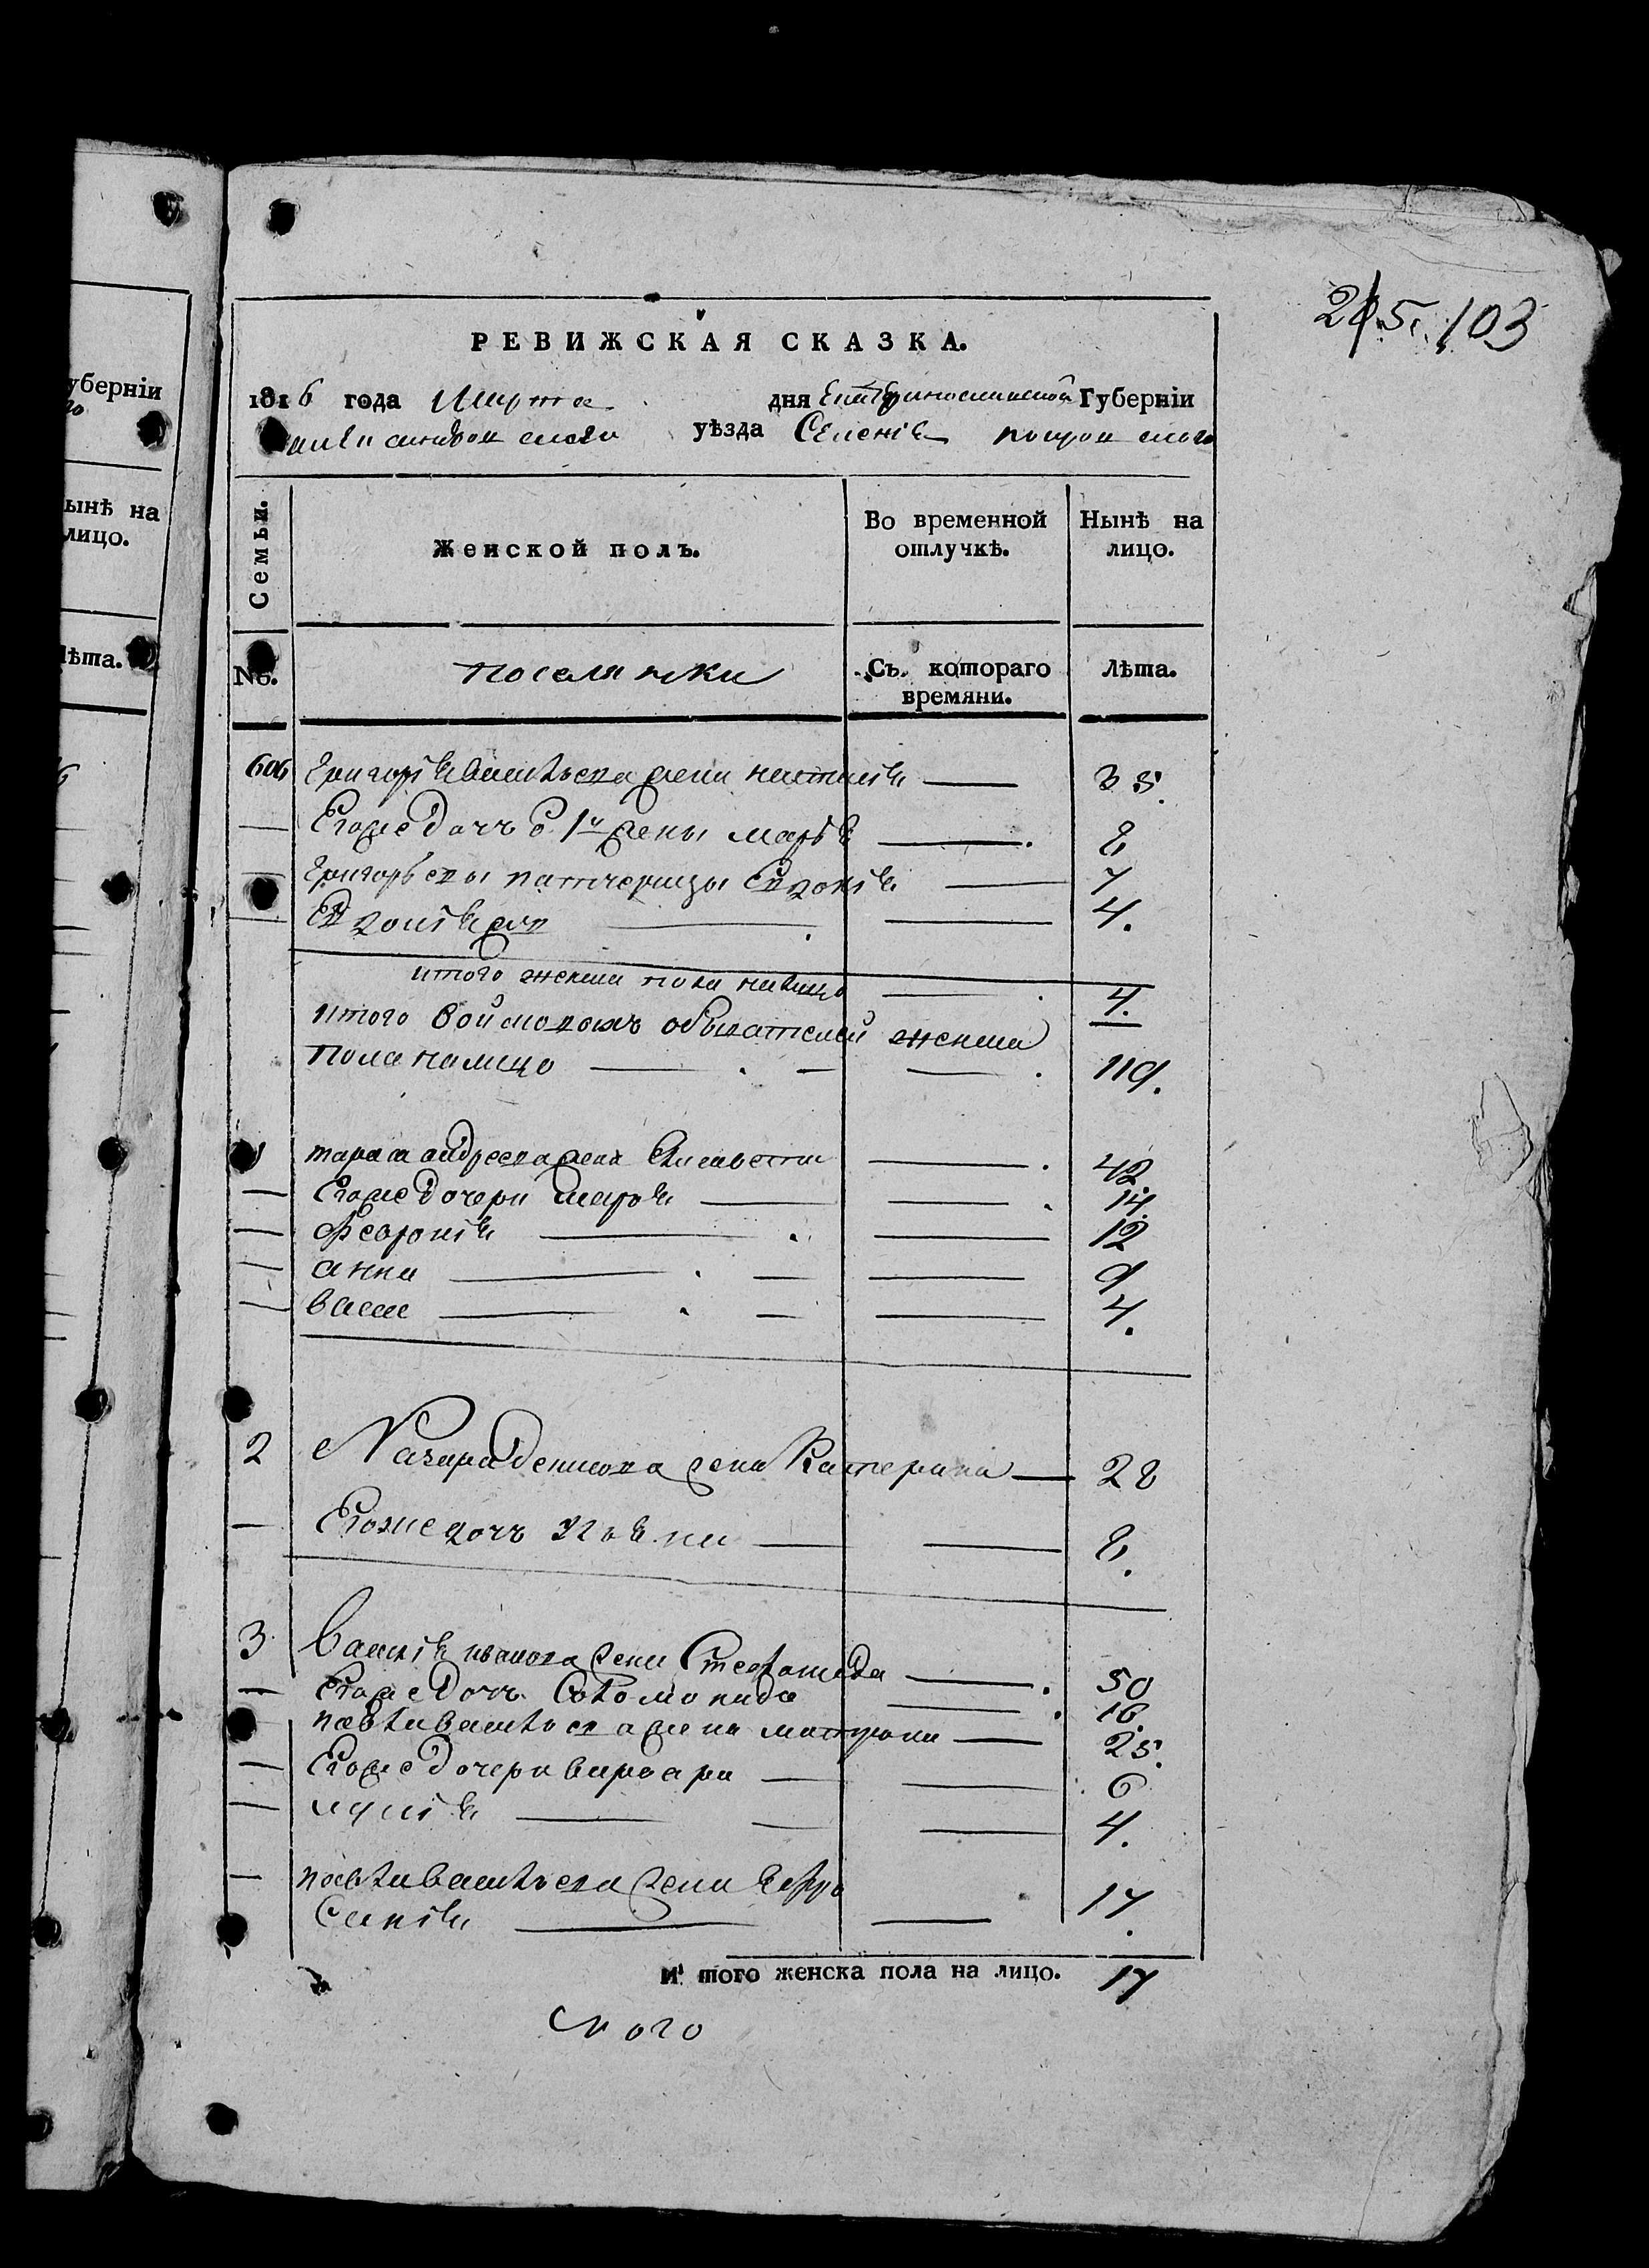 уберніи
го
ынѣ на
лицо.
ѣта.
6
215. 103
РЕВИЖСКАЯ СКАЗКА.
1816 года Марта дня Екатеринославской Губерніи
уѣзда Селенія
Семьи.
Женской полъ.
Во временной отлучкѣ.
Нынѣ на лицо.
№.
поселянки
Съ котораго времяни.
Лѣта.
606 Григорія васильева жена настасія 35.
Его же дочь 1й жены марія 8
Григорьевы патчерицы Евдокія 7
Евдокія же 4.
итого женска пола налицо 4.
итого войсковыхъ обывателей женска
пола налицо 119.
1 тараса андреева жена Елисавета 42.
Его же дочери марья 14.
Феврония 12
анна 9
васса 4.
2 Назара денисова жена Катерина 28
Его же дочь 8.
3 Василія иванова жена Степанида 50
Его же дочь Соломонида 16.
павла васильева жена матрона 25.
Его же дочери варвара 6
4.
павла васильева жена Евфро
синія 17.
И того женска пола на лицо. 17